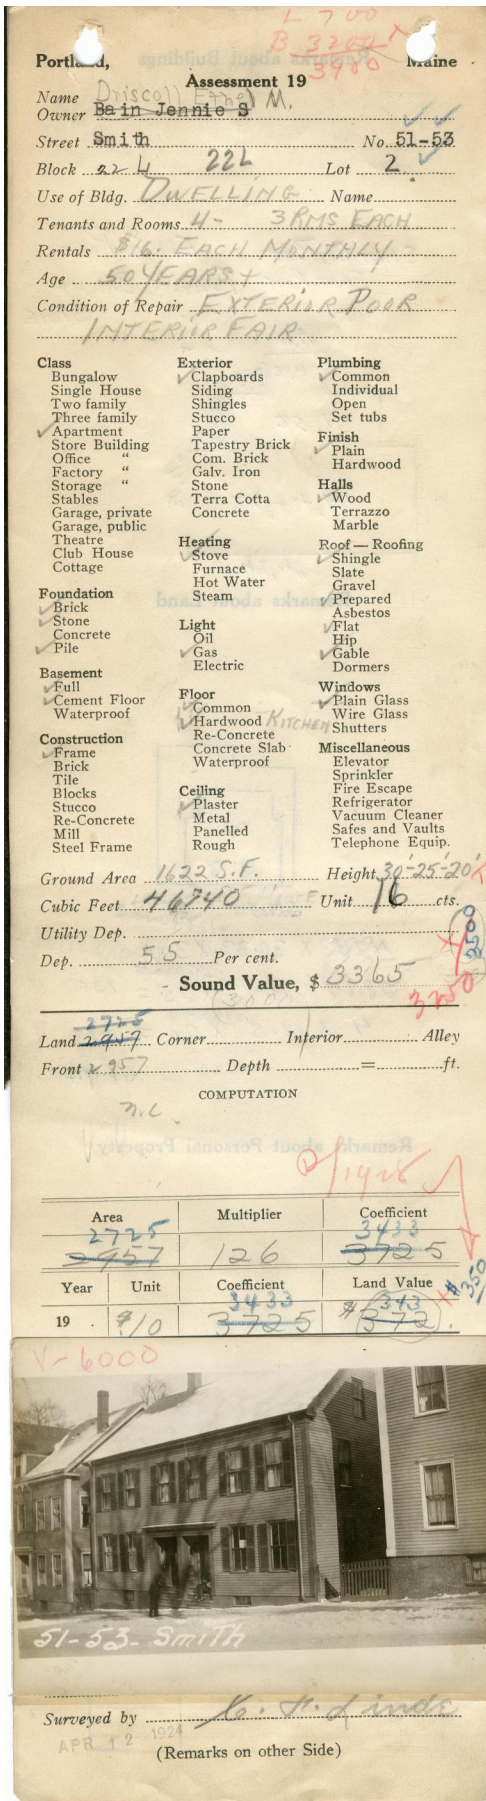 L 700
B 3200
3900
Portland, Maine
Assessment 19
Name Driscoll Ethel M.
Owner Bain Jennie S
Street Smith No. 51-53
Block 22 L 22L Lot 2
Use of Bldg. DWELLING Name
Tenants and Rooms 4- 3 RMS EACH
Rentals $16. EACH MONTHLY
Age 50 YEARS +
Condition of Repair EXTERIOR POOR
INTERIOR FAIR
Class
Bungalow
Single House
Two family
Three family
✓ Apartment
Store Building
Office "
Factory "
Storage "
Stables
Garage, private
Garage, public
Theatre
Club House
Cottage
Foundation
✓ Brick
✓ Stone
Concrete
✓ Pile
Basement
✓ Full
✓ Cement Floor
Waterproof
Construction
✓ Frame
Brick
Tile
Blocks
Stucco
Re-Concrete
Mill
Steel Frame
Exterior
✓ Clapboards
Siding
Shingles
Stucco
Paper
Tapestry Brick
Com. Brick
Galv. Iron
Stone
Terra Cotta
Concrete
Heating
✓ Stove
Furnace
Hot Water
Steam
Light
Oil
✓ Gas
Electric
Floor
✓ Common
✓ Hardwood KITCHEN
Re-Concrete
Concrete Slab
Waterproof
Ceiling
✓ Plaster
Metal
Panelled
Rough
Plumbing
✓ Common
Individual
Open
Set tubs
Finish
✓ Plain
Hardwood
Halls
✓ Wood
Terrazzo
Marble
Roof — Roofing
✓ Shingle
Slate
Gravel
✓ Prepared
Asbestos
✓ Flat
Hip
✓ Gable
Dormers
Windows
✓ Plain Glass
Wire Glass
Shutters
Miscellaneous
Elevator
Sprinkler
Fire Escape
Refrigerator
Vacuum Cleaner
Safes and Vaults
Telephone Equip.
Ground Area 1622 S.F. Height 30'-25'-20'
Cubic Feet 46740 Unit 16 cts.
Utility Dep.
3500
Dep. 55 Per cent.
Sound Value, $ 3365
3250
2725
Land 2957 Corner Interior Alley
Front 2957 Depth = ft.
COMPUTATION
n.c.
1428
Area Multiplier Coefficient
2725 3433
2957 126 3725
Year Unit Coefficient Land Value
350
3433 343
19 . $10 3725 $372.
V-6000
51-53- Smith
Surveyed by
APR 12 1924
(Remarks on other Side)